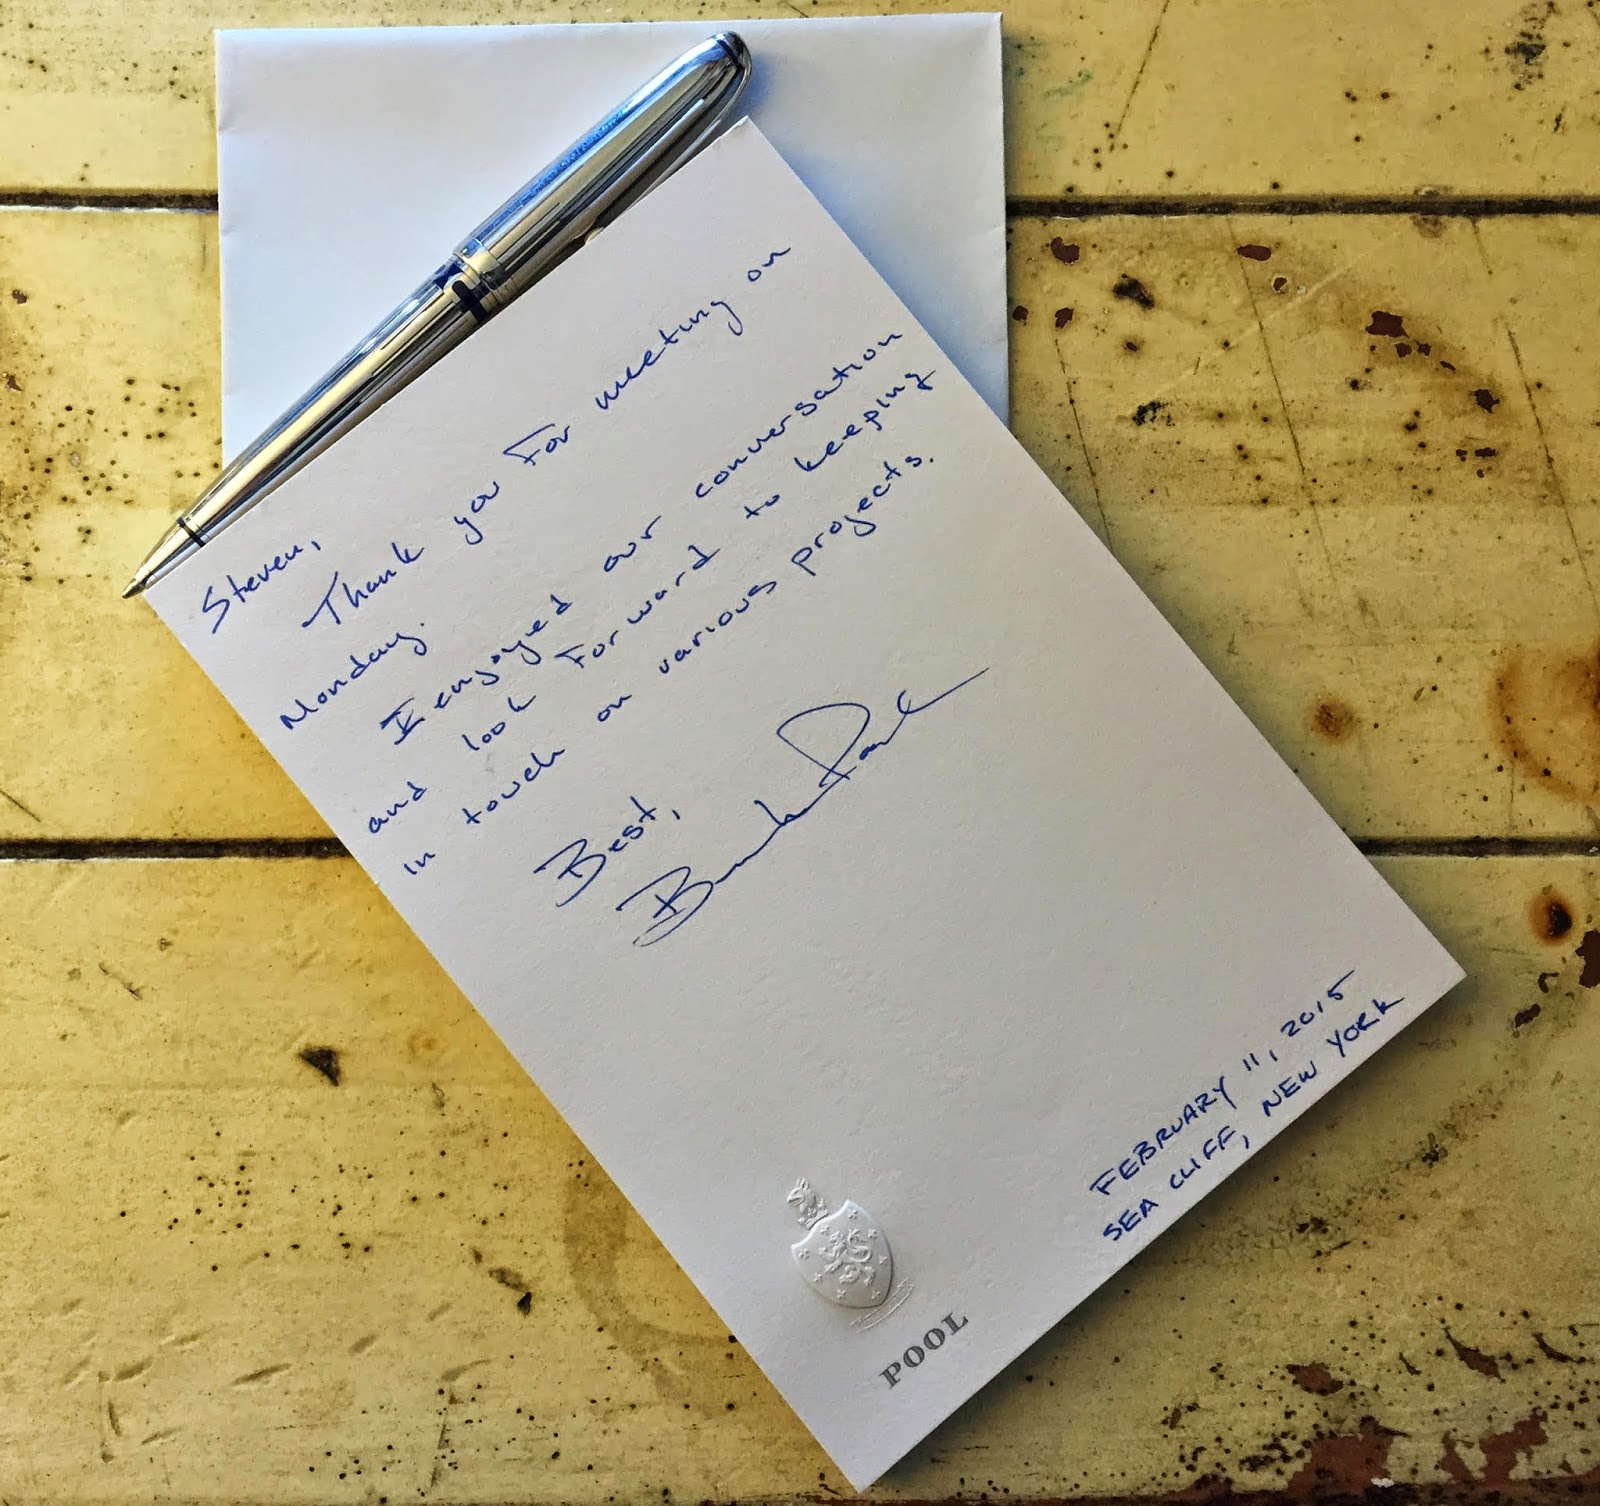 Steven,
Thank you for meeting on
Monday.
I enjoyed our conversation
and look forward to keeping
in touch on various projects.
Best,
FEBRUARY 11, 2015
SEA CLIFF, NEW YORK
POOL